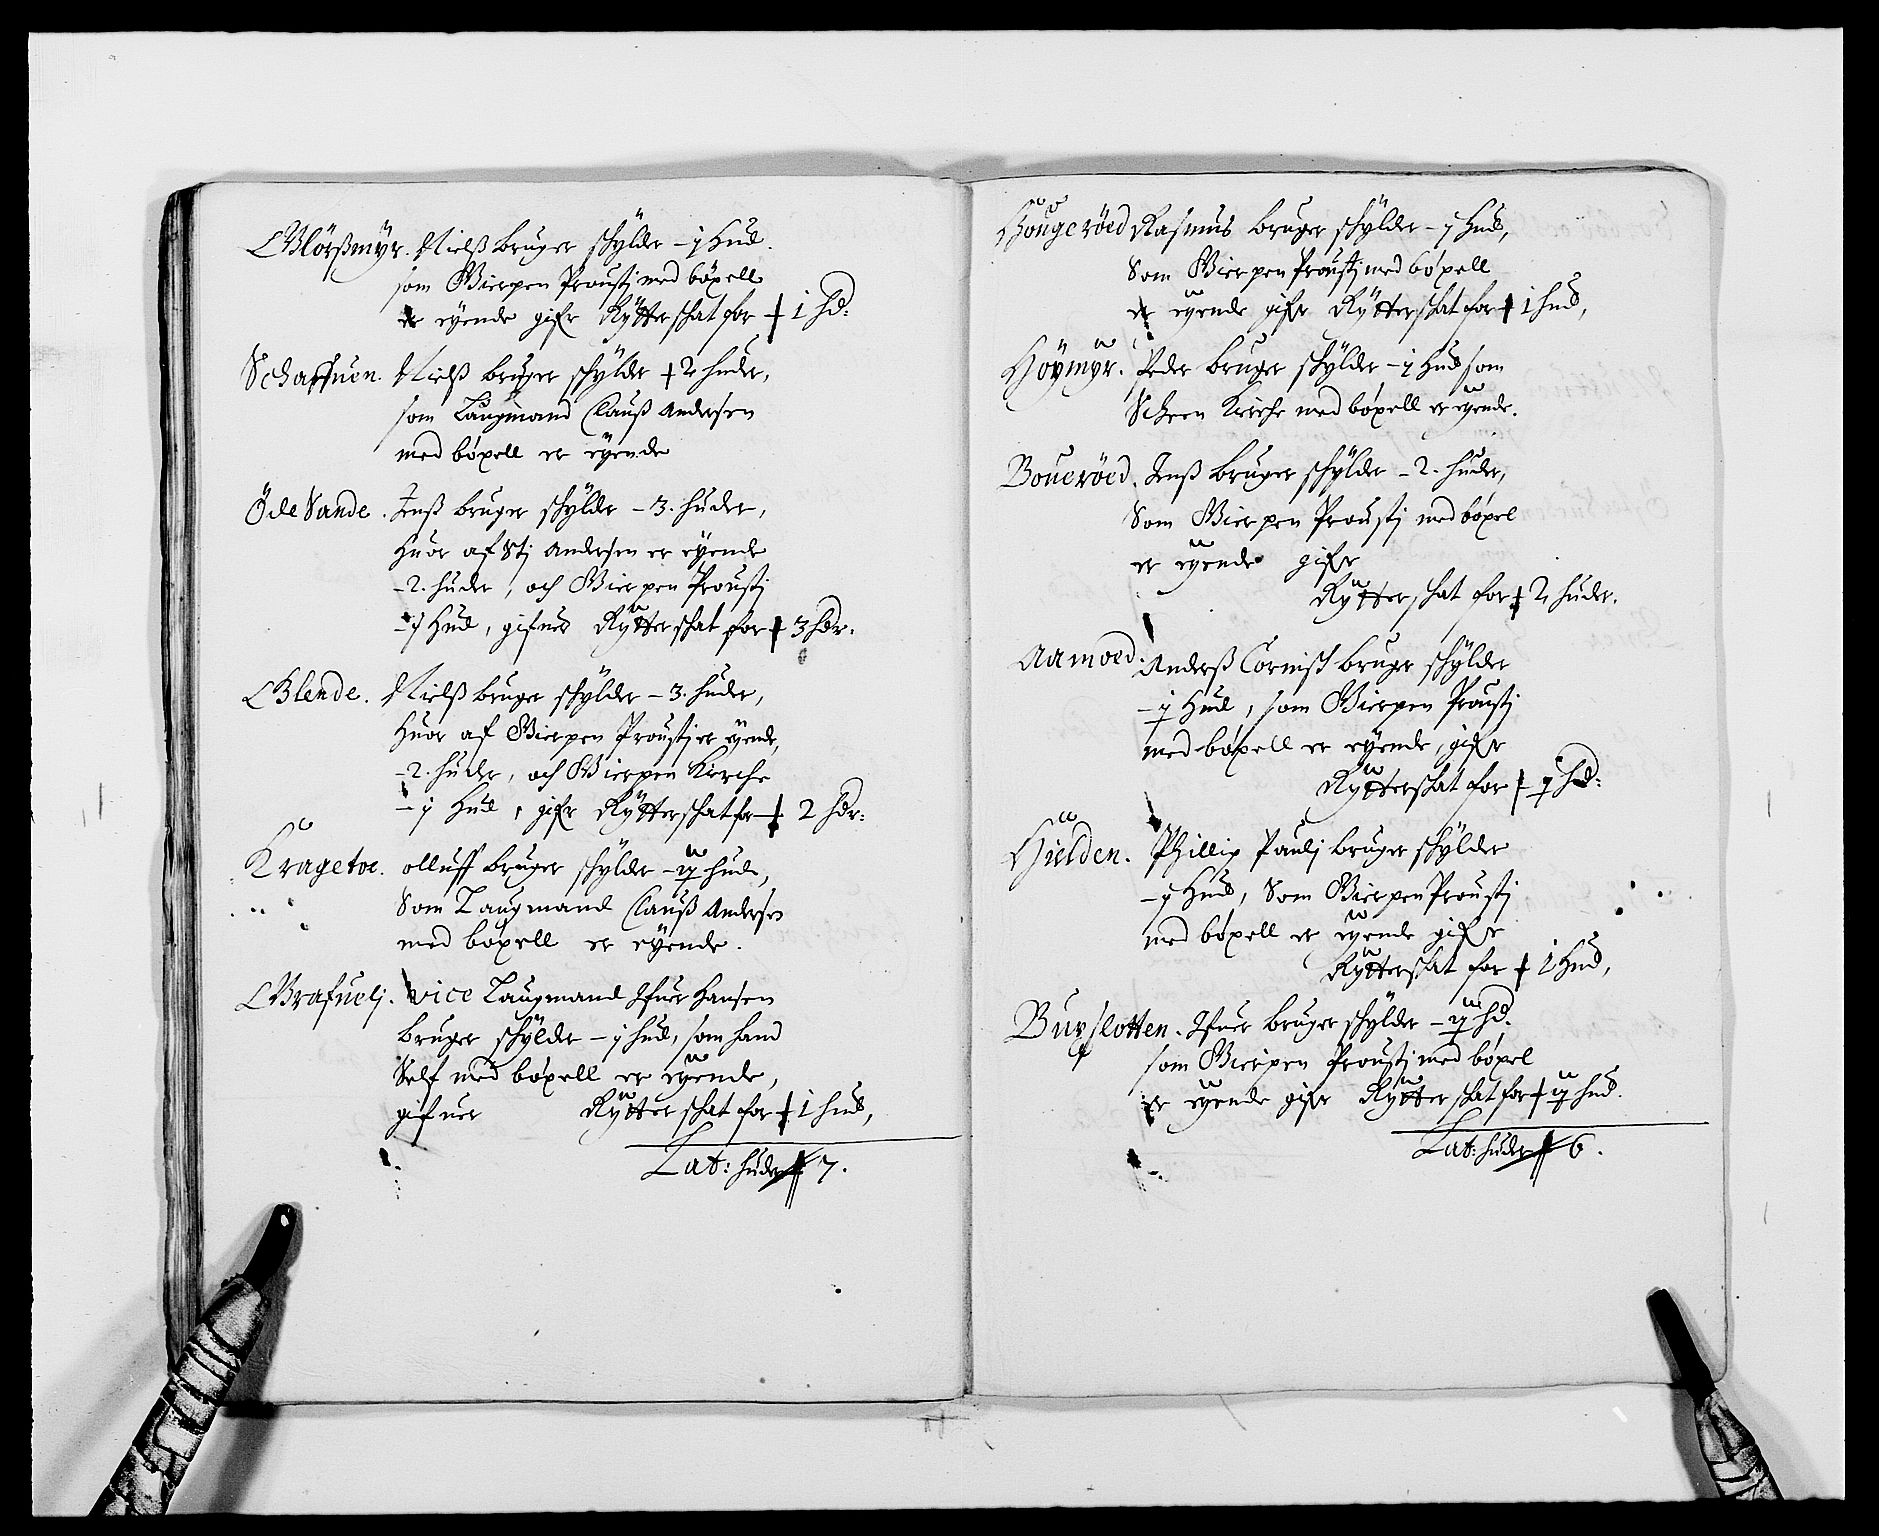 Glörßmyr. Nielß bruger schÿlder - j Hud.
som Gierpen Proustj med böxell
er eÿende gifr Rÿtterschat for - 1 hd:
Schaffuen. Nielß bruger schÿlder - 2 huder,
som Laugmand Clauß Andersen
med böxell er eÿende
Öde Sande. Jenß bruger schÿlder - 3. huder,
Huor af Sti Andersen er eÿende
- 2. huder, och Gierpen Proustj
- j Hud, gifuer Rÿtterschat for - 3 hdr.
Blende. Nielß bruger schÿlder - 3. huder,
Huor af Gierpen Proustj er eÿende,
- 2. huder, och Gierpen Kirche
- j Hud, gifr Rÿtterschat for - 2 hdr:
Kragetoe. olluff bruger schÿlder - hude,
Som Laugmand Clauß Andersen
med böxell er eÿende.
Grafuelj. vice Laugmand Ifuer Hansen
bruger schÿlder - j hud, som hand
Self med böxell er eÿende,
gifuer Rÿtter schat for - 1 hud,
Lat: huder 7.
Hougeröed Rasmus bruger schÿlder - j Hud,
Som Gierpen Proustj med böxell
er eÿende gifr Rÿtterschat for - 1 hud,
Höymÿr. Peder bruger schÿlder - j Hud som
Scheen Kirche med böxell er eÿende.
Boueröed. Jenß bruger schÿlder - 2. huder,
Som Gierpen Proustj med böxel
er eÿende gifr
Rÿtterschat for - 2 huder.
Aamoed. Anderß Cornisch bruger schÿlder
- Hud, som Gierpen Proustj
med böxell er eÿende, gifr
Rÿtterschat for - hd:
Hielden. Phillip Paulj bruger schÿlder
- j Hud, Som Gierpen Proustj
med böxell er eÿende gifr
Rÿtterschat for - 1 Hud,
Ifuer bruger schÿlder - hd.
som Gierpen Proustj med böxel
er eÿende gifr Rÿtterschat for - hud.
Lat: huder 6.